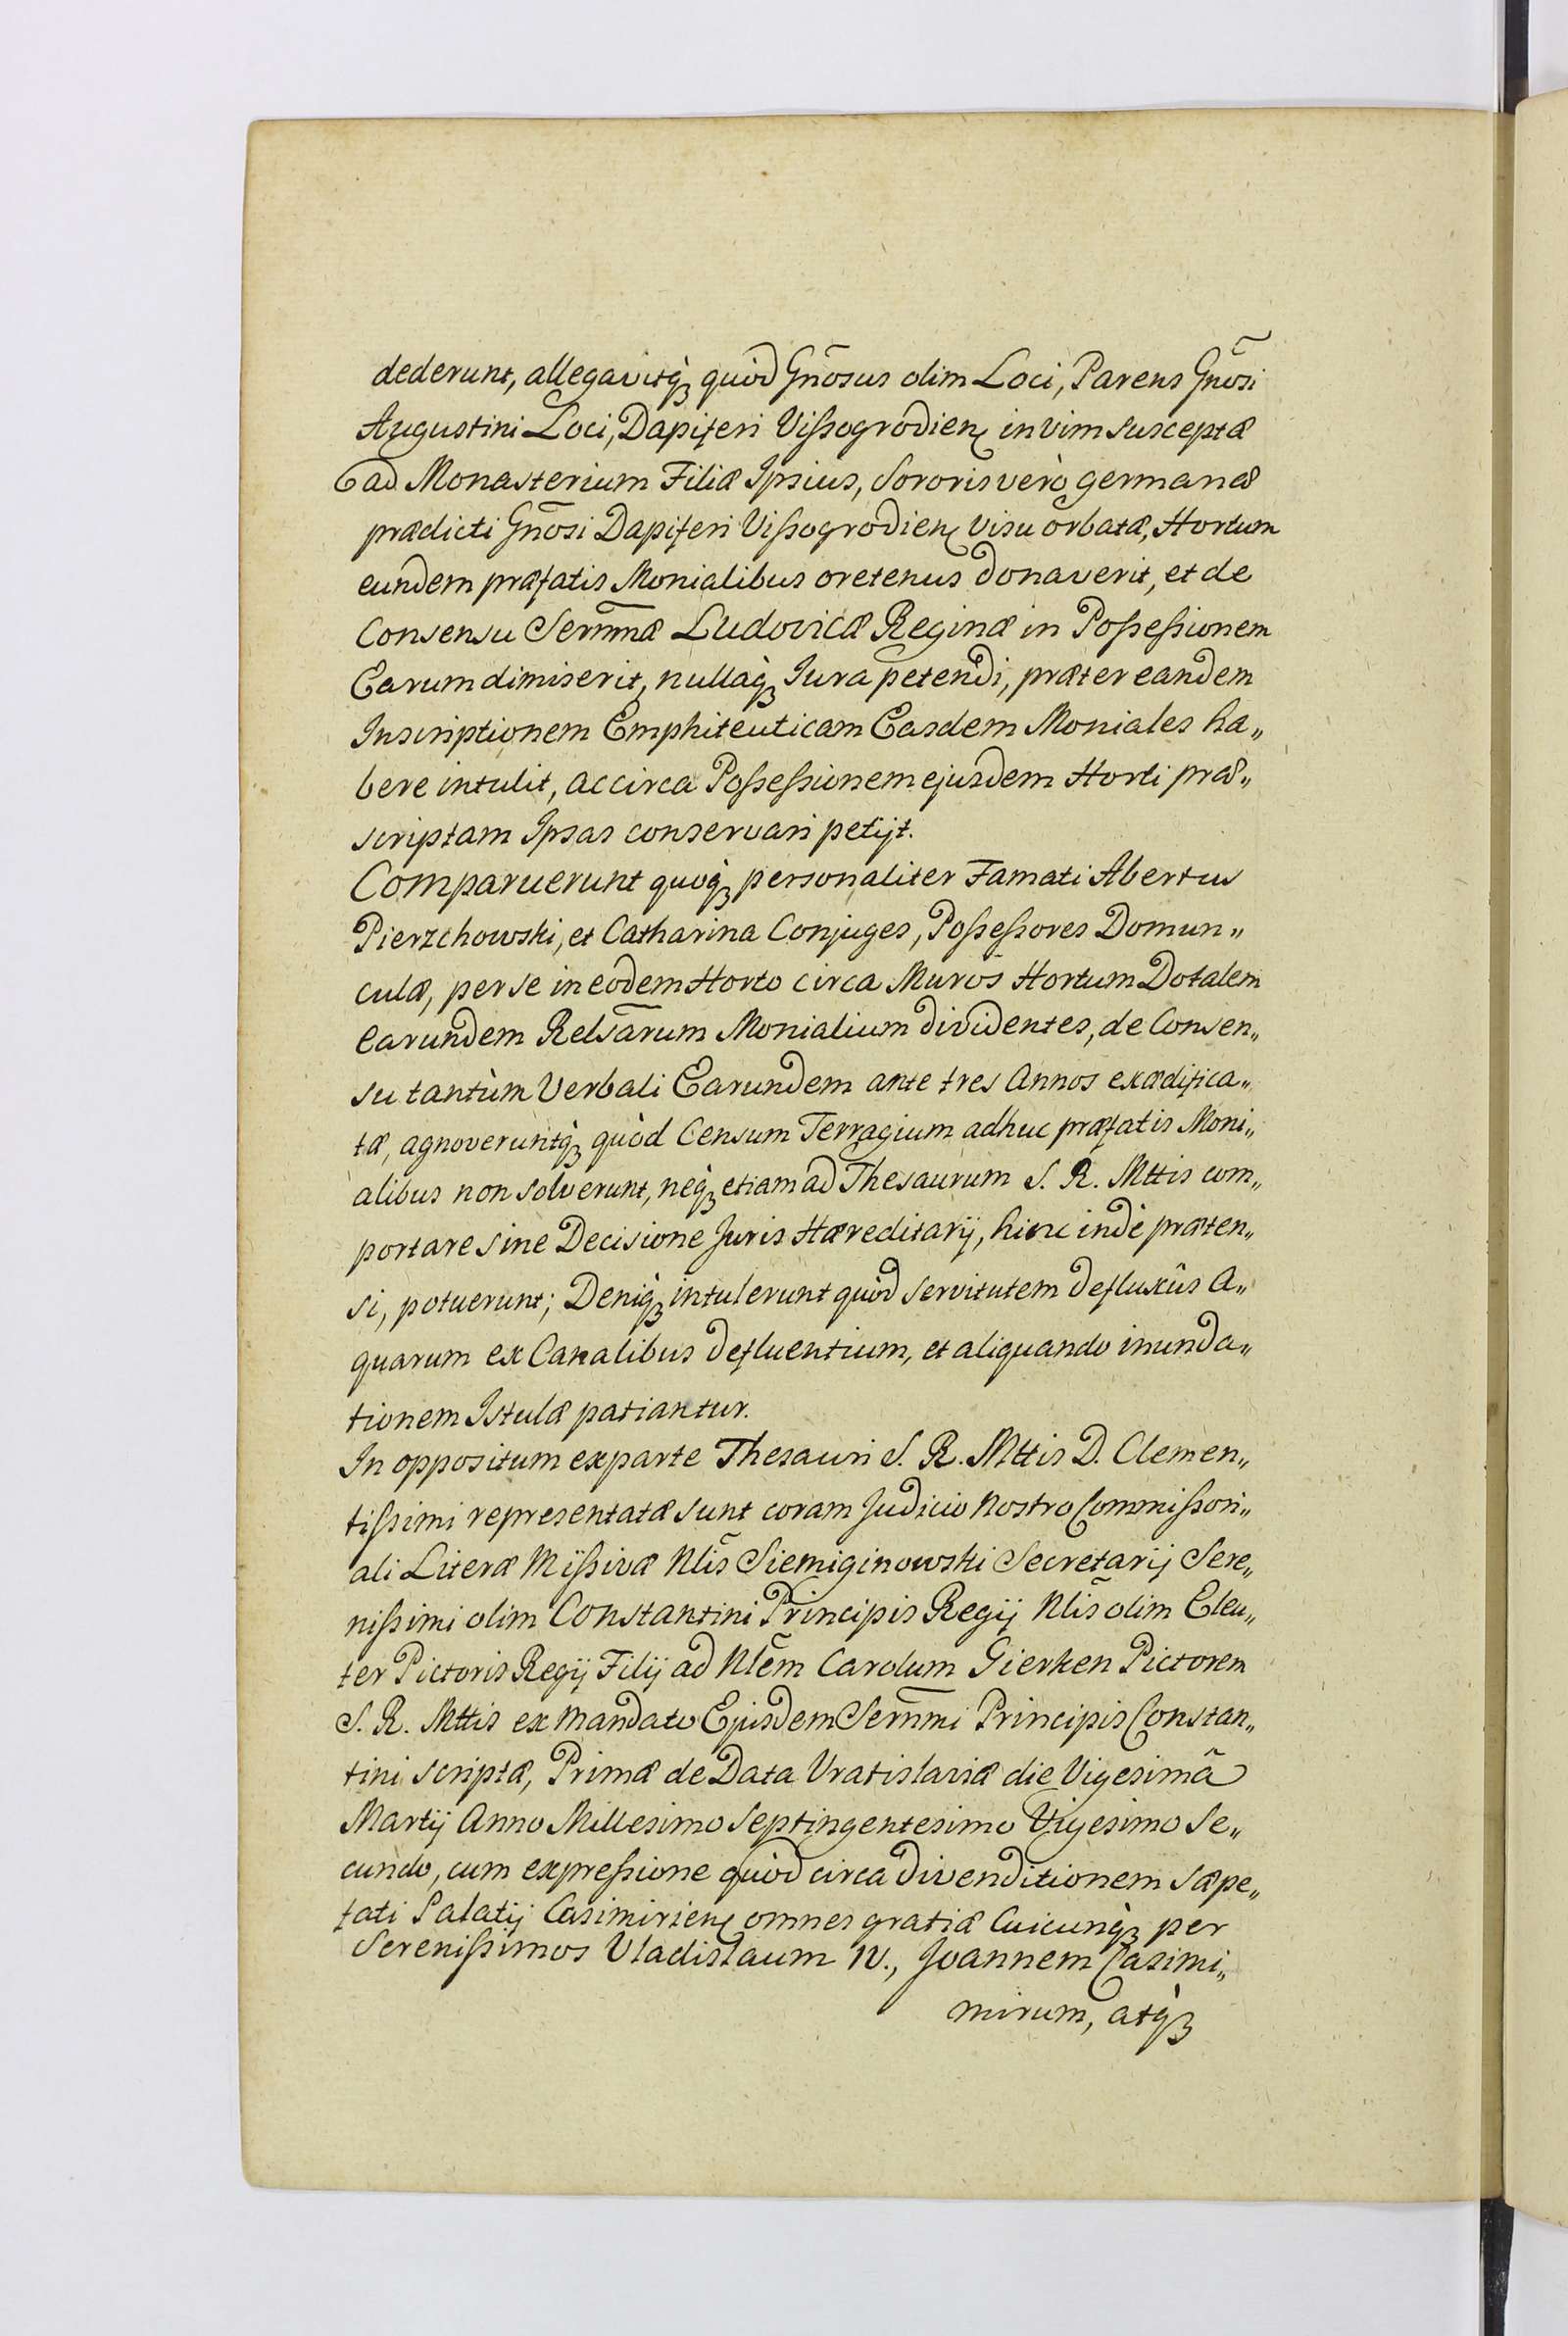 dederunt, allegavitq́ꝫ quòd Gnōsus olim Loci, Parens Gnōsi
Augustini Loci, Dapiferi Vißogrodien̨ in vim susceptæ
ad Monasterium Filiæ Ipsius, Sororis verò germanæ
prædicti Gnōsi Dapiferi Vißogrodien̨ visu orbatæ, Hortum
eundem præfatis Monialibus oretenus donaverit, et de
Consensu Serm̄næ Ludovicæ Reginæ in Poßeßionem
Earum dimiserit, nullaq́ꝫ Jura petendi, præter eandem
Inscriptionem Emphiteuticam Easdem Moniales ha„
bere intulit, ac circa Poßeßionem ejusdem Horti præ„
scriptam Ipsas conservari petijt.
Comparuerunt quoq́ꝫ personaliter Famati Abertus
Pierzchowski, et Catharina Conjuges, Poßeßores Domun„
culæ, per se in eodem Horto circa Muros Hortum Dotalem
earundem Relsārum Monialium dividentes, de Consen„
su tantùm Verbali Earundem ante tres Annos exædifica„
tæ, agnoveruntq́ꝫ quòd Censum Terragium adhuc præfatis Moni„
alibus non solverunt, neq́ꝫ etiam ad Thesaurum S. R. Mttis com„
portare sine Decisione Juris Hæreditarij, hinc indè præten„
si, potuerunt; Deniq́ꝫ intulerunt quòd servitutem defluxûs A„
quarum ex Canalibus defluentium, et aliquando inunda„
tionem Istulæ patiantur.
In oppositum ex parte Thesauri S. R. Mttis D. Clemen„
tißimi representatæ sunt coram Judicio Nostro Commißori„
ali Literæ Mißivæ Nlis̄ Siemiginowski Secretarij Sere„
nißimi olim Constantini Principis Regij Nlis̄ olim Eleu„
ter Pictoris Regij Filij ad Nlēm Carolum Gierken Pictorem
S. R. Mttis ex mandato Ejusdem Serm̄mi Principis Constan„
tini scriptæ, Primæ de Data Vratislaviæ die Vigesimâ
Martij Anno Millesimo Septingentesimo Vigesimo Se„
cundo, cum expreßione quòd circa divenditionem sæpe„
fati Palatij Casimirien̨ omnes gratiæ Cuicunq́ꝫ per
Serenißimos Vladislaum IV., Joannem Casimi„
mirum, atq́ꝫ